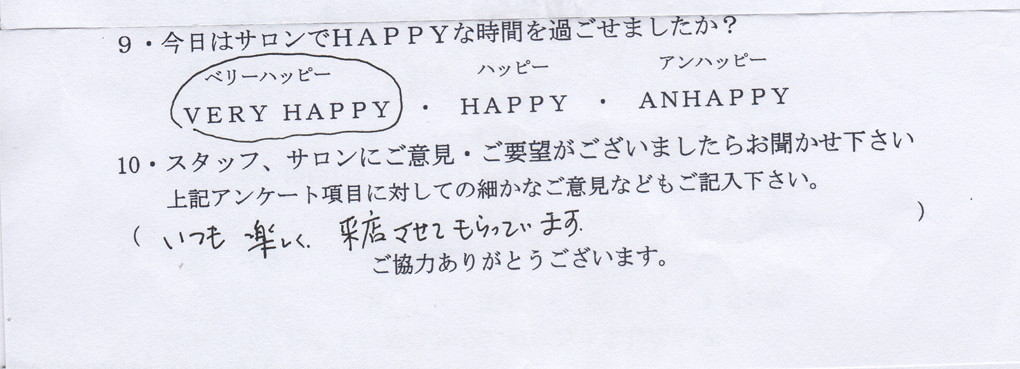 9・今日はサロンでHAPPYな時間を過ごせましたか？
ベリーハッピー ハッピー アンハッピー
VERY HAPPY ・ HAPPY ・ ANHAPPY
10・スタッフ、サロンにご意見・ご要望がございましたらお聞かせ下さい
上記アンケート項目に対しての細かなご意見などもご記入下さい。
（ いつも 楽しく、来店させてもらっています。 ）
ご協力ありがとうございます。